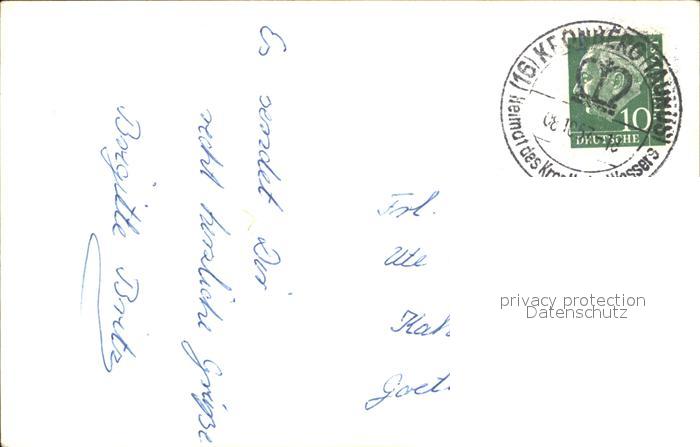 Es sendet Dir
recht herzliche Grüße
Brigitte
Frl.
Ute
Kah
Goet
(16) KRONBERG (TAUNUS)
Heimat des Kron
Wassers
10
DEUTSCHE
privacy protection
Datenschutz